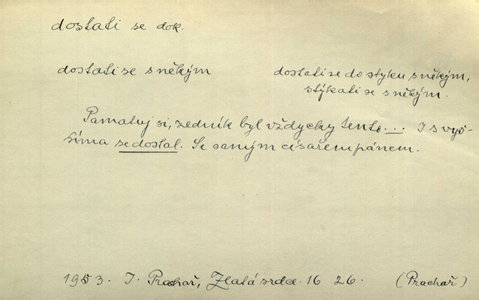 dostati se dok.
dostati se s někým
dostati se do styku s někým,
stýkati se s někým.
Pamatuj si, zedník byl vždycky tento... I s vyš-
šíma se dostal. Se samým císařempánem.
1953. I. Prachař, Zlatá srdce. 16 26. (Prachař)